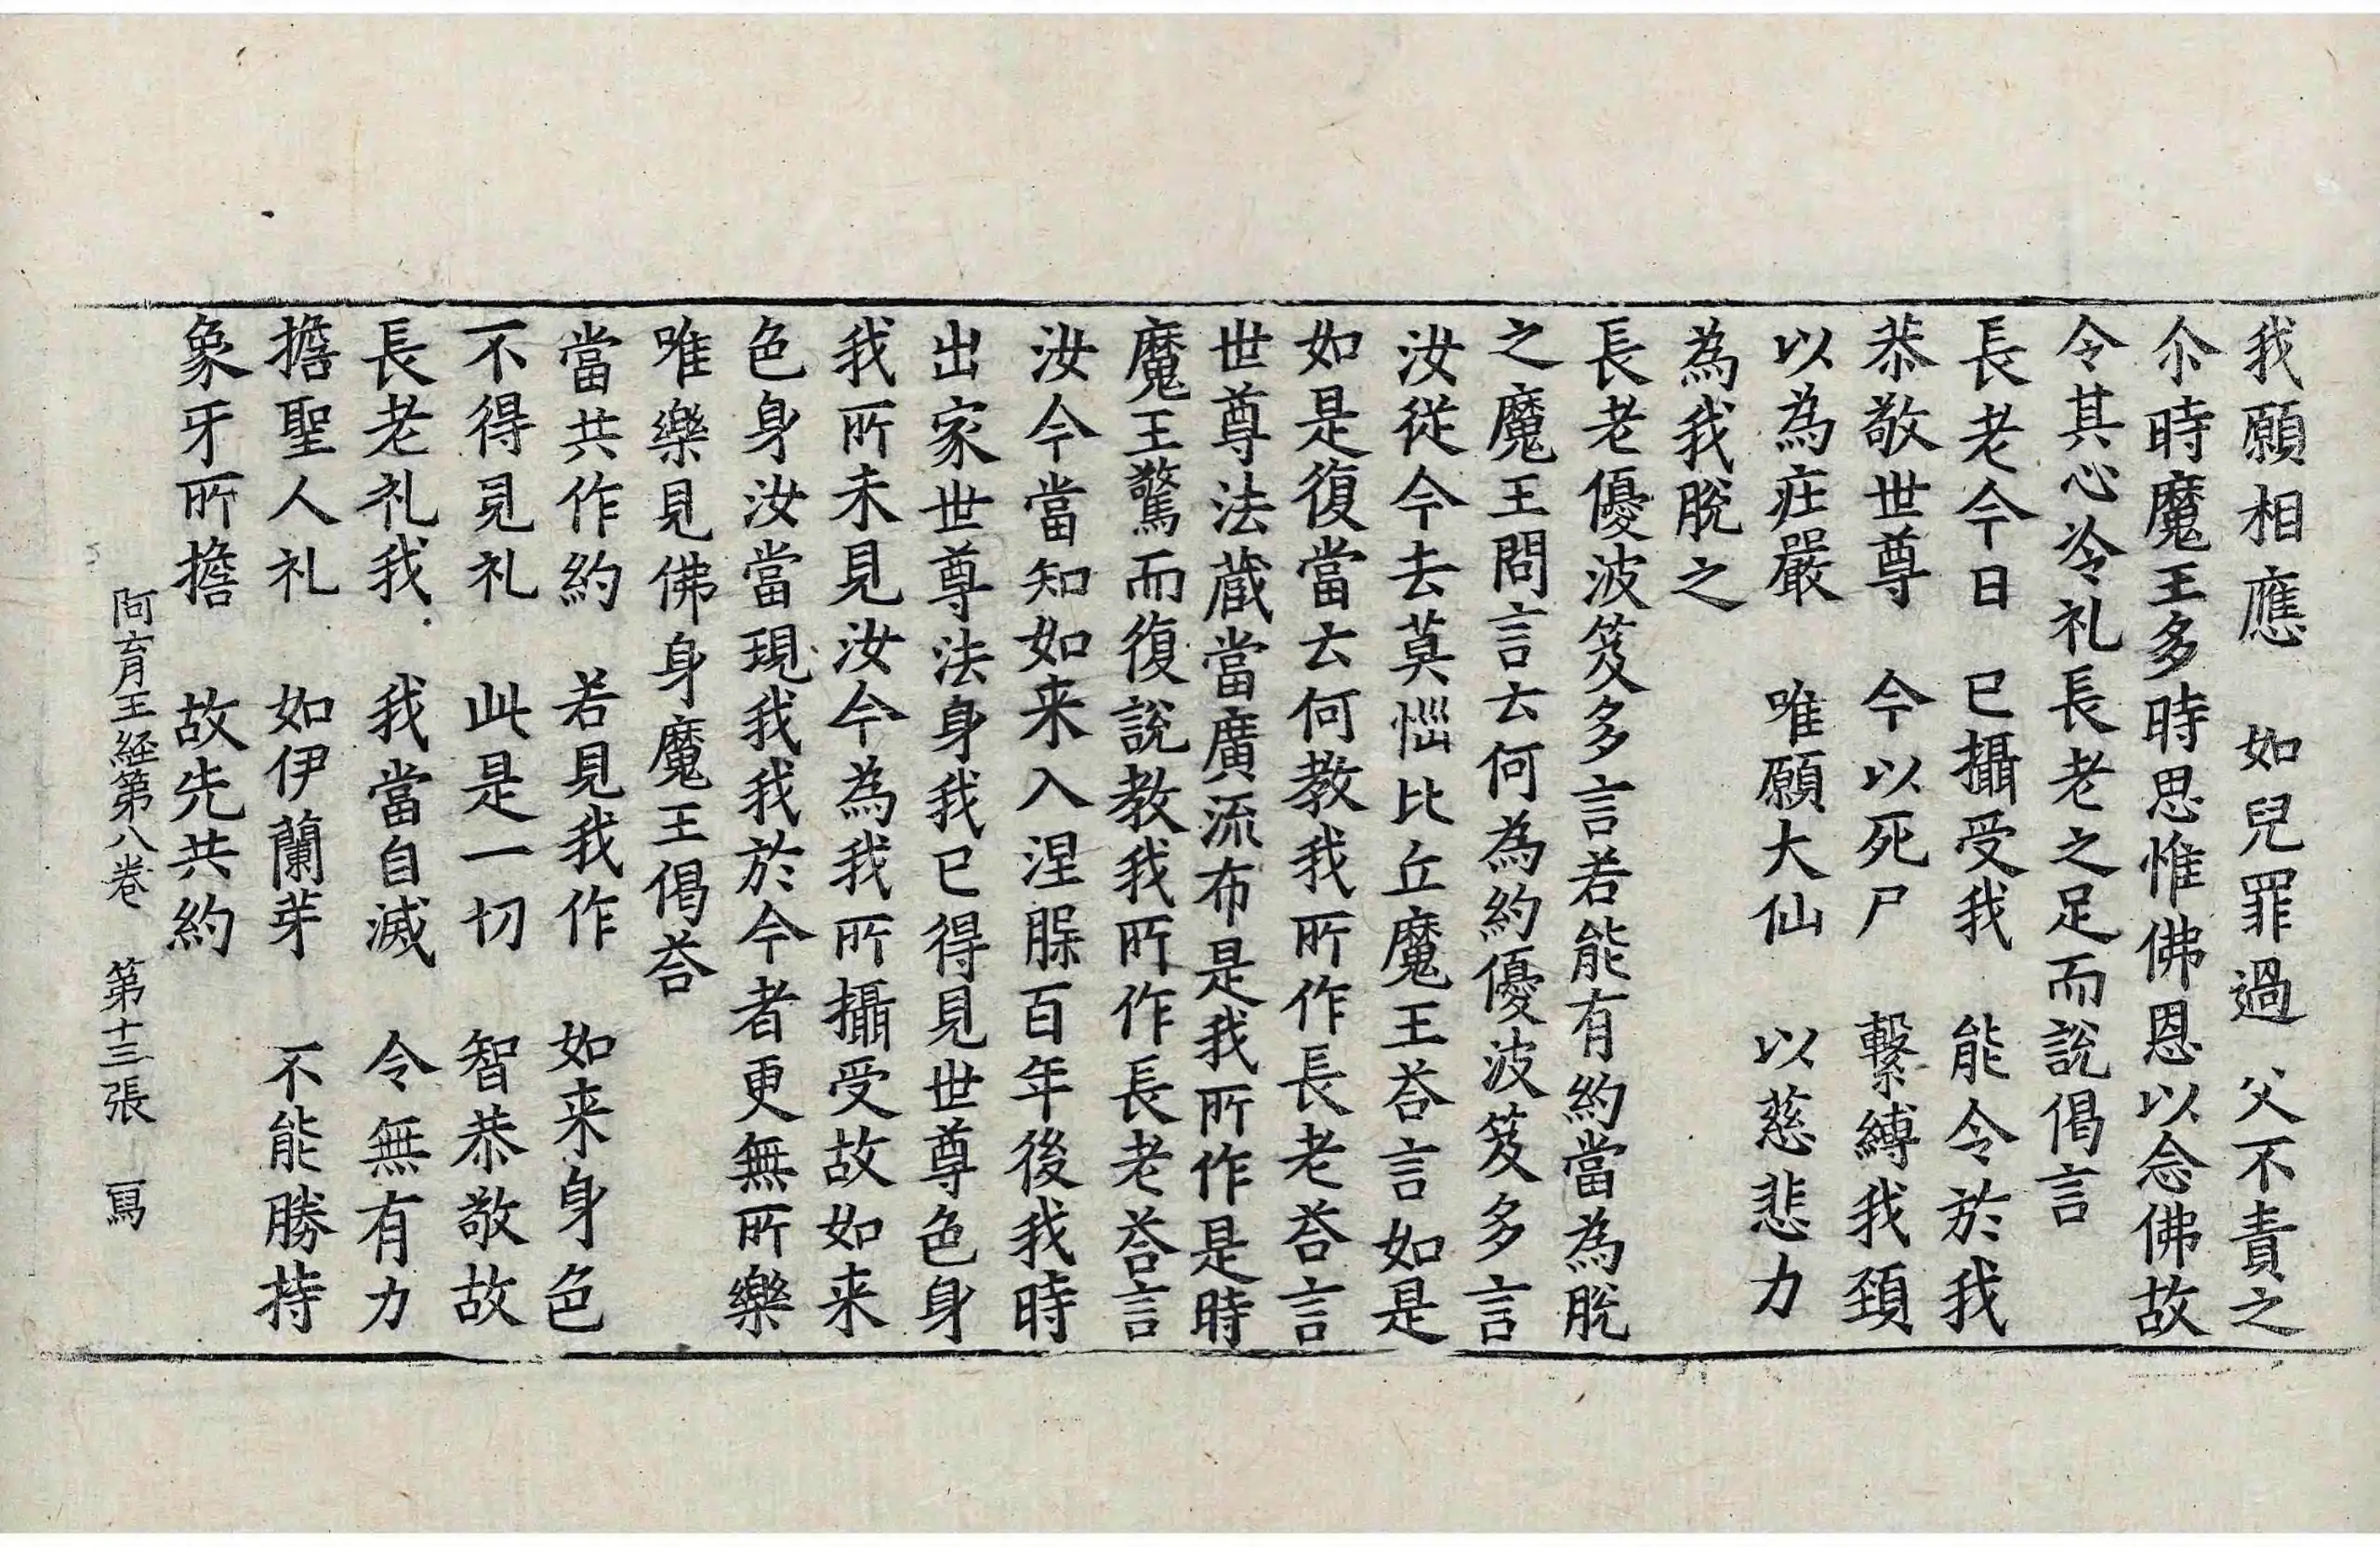 我願相應　如兒罪過　父不責之
尒時魔王多時思惟佛恩以念佛故
令其心冷礼長老之足而說偈言
長老今日　已攝受我　能令於我
恭敬世尊　今以死尸　繫縛我頚
以為疘嚴　唯願大仙　以慈悲力
為我脫之
長老優波笈多言若能有約當為脫
之魔王問言去何為約優波笈多言
汝從今去莫惱比丘魔王荅言如是
如是復當去何教我所作長老荅言
世尊法蔵當廣流布是我所作是時
魔王驚而復說教我所作長老荅言
汝今當知如来入涅脲百年後我時
出家世尊法身我已得見世尊色身
我所未見汝今為我所攝受故如来
色身汝當現我我於今者更無所樂
唯樂見佛身魔王偈荅
當共作約　若見我作　如来身色
不得見礼　此是一切　智恭敬故
長老礼我　我當自滅　令無有力
擔聖人礼　如伊蘭芽　不能勝持
象牙所擔　故先共約
阿育王經第八卷　第十三張　寫